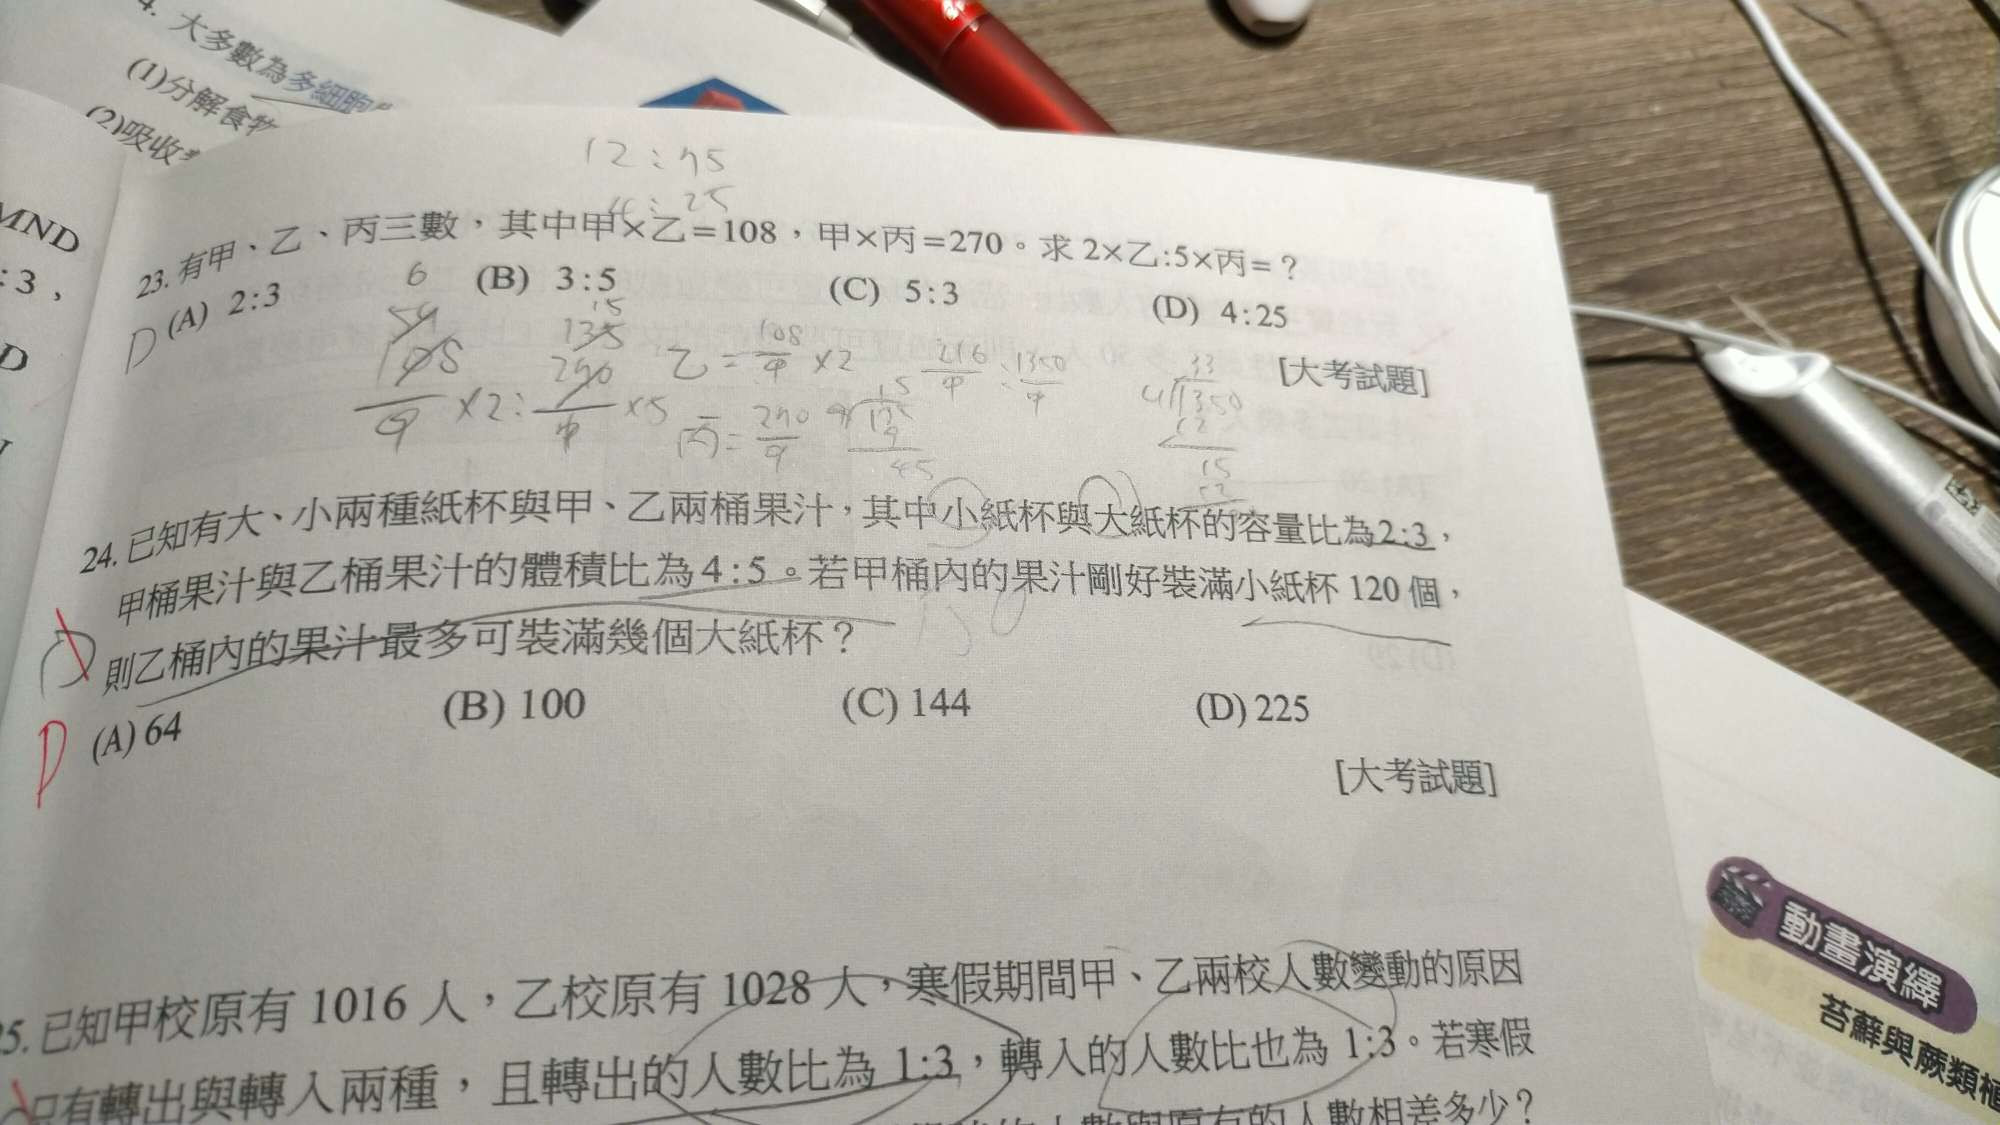 4. 大多數為多細胞
(1)分解食物
(2)吸收
MND
:3，
D
12:45
4:25
23. 有甲、乙、丙三數，其中甲×乙=108，甲×丙=270。求 2×乙:5×丙=？
(A) 2:3
(B) 3:5
(C) 5:3
(D) 4:25
D
[大考試題]
6
54
108
甲
×2:
15
135
270
甲
×5
乙=108/甲×2
丙=270/甲
216/甲:1350/甲
24. 已知有大、小兩種紙杯與甲、乙兩桶果汁，其中小紙杯與大紙杯的容量比為2:3，
甲桶果汁與乙桶果汁的體積比為4:5。若甲桶內的果汁剛好裝滿小紙杯 120 個，
則乙桶內的果汁最多可裝滿幾個大紙杯？
(A) 64
(B) 100
(C) 144
(D) 225
D
[大考試題]
25. 已知甲校原有 1016 人，乙校原有 1028 人，寒假期間甲、乙兩校人數變動的原因
只有轉出與轉入兩種，且轉出的人數比為 1:3，轉入的人數比也為 1:3。若寒假
人數與原有的人數相差多少？
動畫演繹
苔蘚與蕨類植